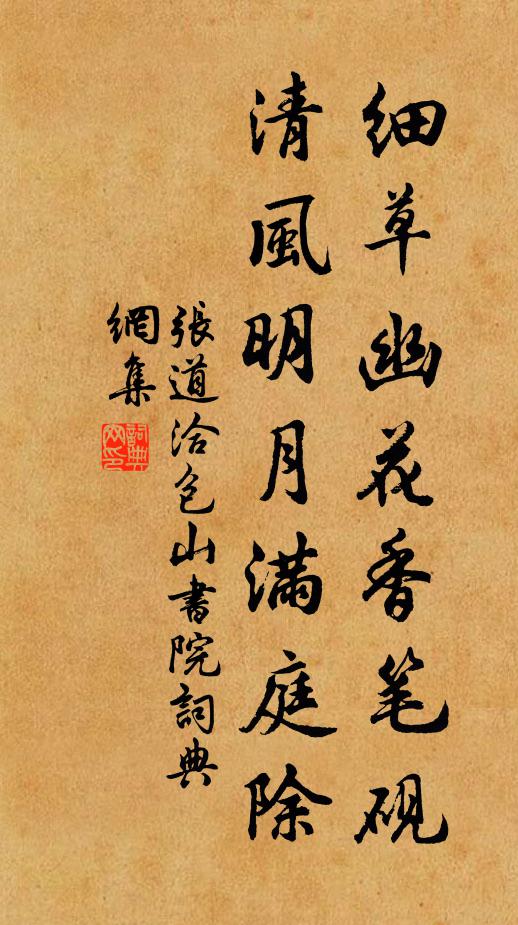 细草幽花香笔砚
清風明月满庭除
張道洽包山書院詞典
網集
詞典
网印